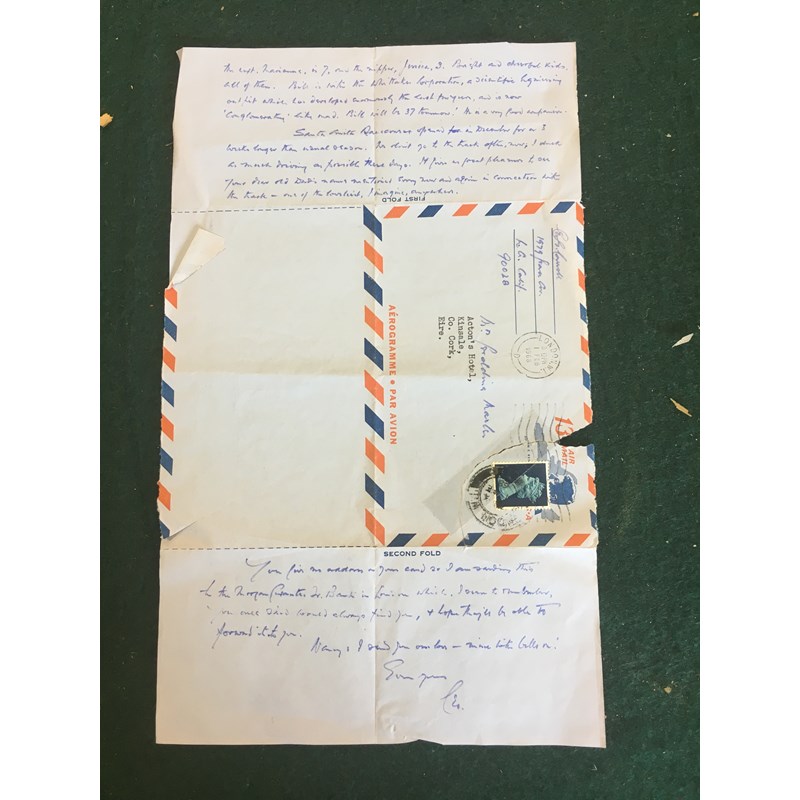 the next, Marianne, is 7, one the nipper, Jessica, 3. Bright and cheerful kids,
all of them. Bill is with the Whittaker Corporation, a scientific engineering
outfit which has developed enormously the last years, and is now
'conglomerating' like mad. Bill will be 37 tomorrow! He's a very good
Santa Anita Racecourse opened in December for a 3
weeks longer than usual season. We don't go to the track often, now, I
as much driving as possible these days. It gives us great pleasure to see
your dear old Dad's name mentioned every now and again in connection with
the track - one of the loveliest, I imagine, anywhere.
FIRST FOLD
1979 Grace Av.
L.A. Calif.
90028
LONDON
1968
13
AIR MAIL
Mr.
Acton's Hotel,
Kinsale,
Co. Cork,
Eire.
AÉROGRAMME * PAR AVION
SECOND FOLD
You give no address on your card so I am sending this
to the Morgan Guaranty in London which, I seem to remember,
you said would always find you, & hope they'll be able to
forward it to you.
Nancy & I send you our love - mine with bells on!
Ever yours